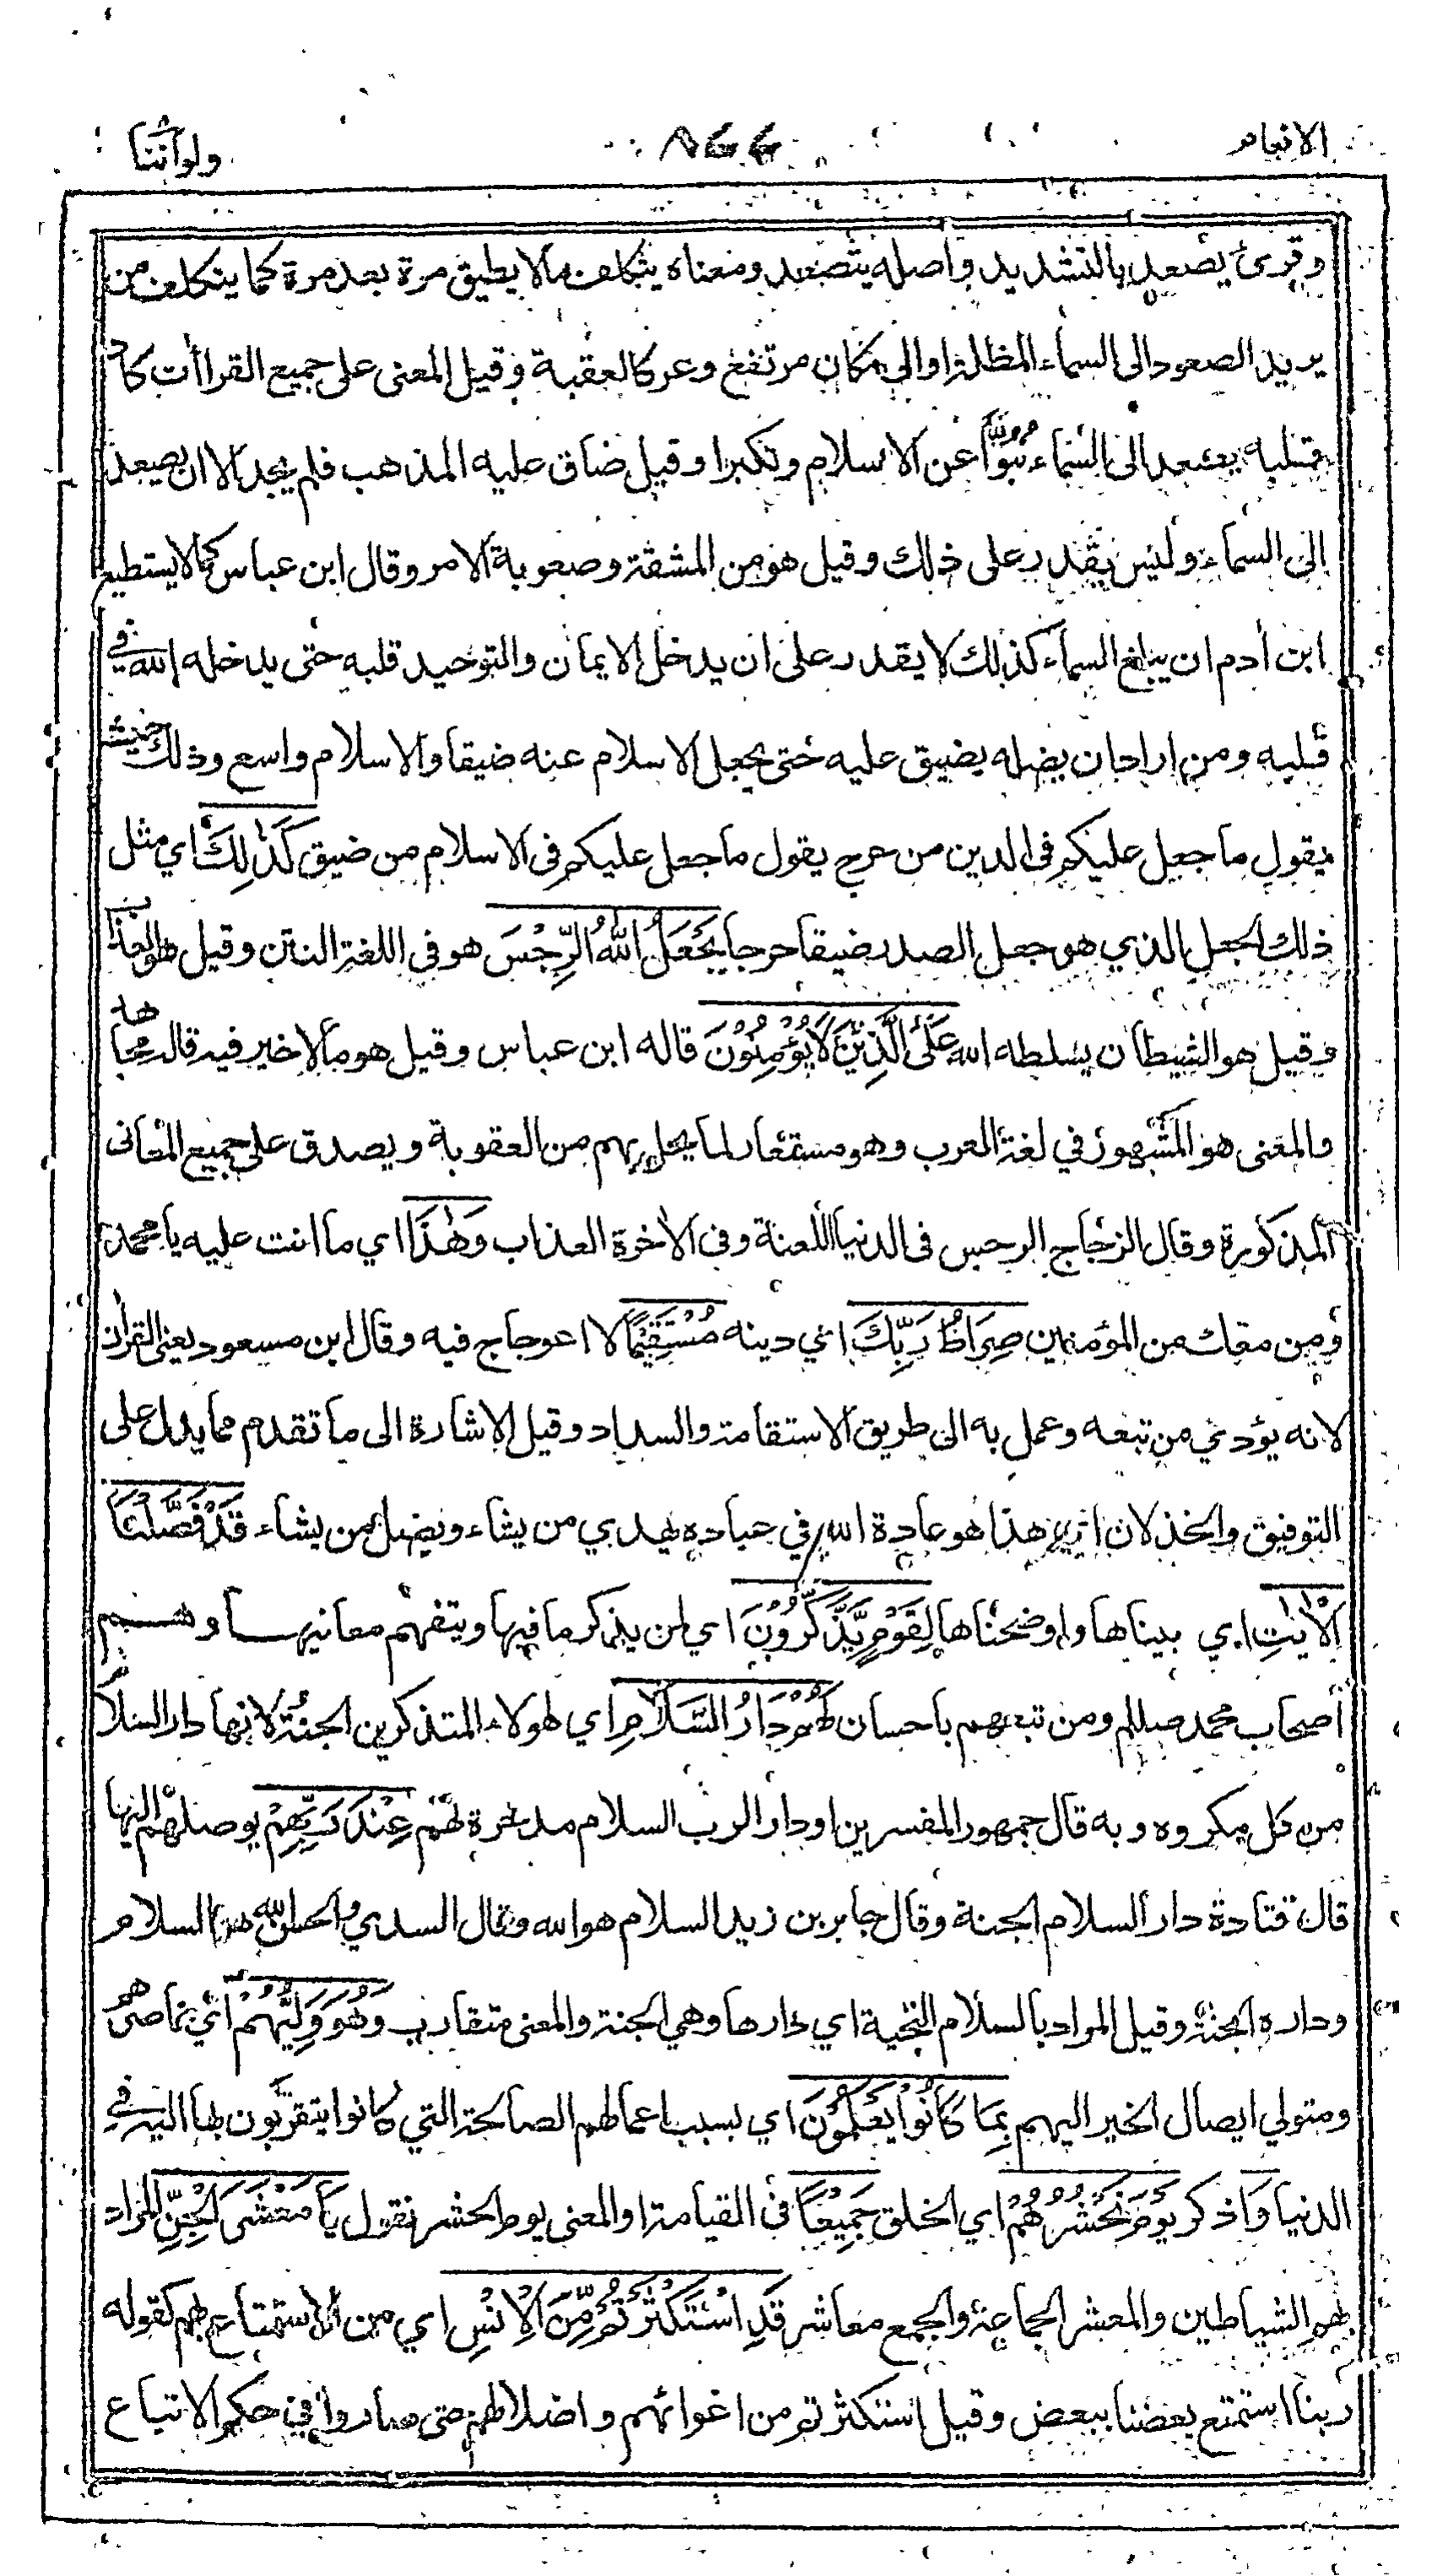 الانعام ولواننا
وقرئ يصعد بالتشديد واصله يتصعد ومعناه يتكلف مالا يطيق مرة بعد مرة كما يتكلف من
يريد الصعود الى السماء المظلة او الى مكان مرتفع وعر كالعقبة وقيل المعنى على جميع القراأت كاد
قلبه يصعد الى السماء نبوا عن الاسلام وتكبرا وقيل ضاق عليه المذهب فلم يجد الا ان يصعد
الى السماء وليس يقدر على ذلك وقيل هو من المشقة وصعوبة الامر وقال ابن عباس كما لا يستطيع
ابن أدم ان يبلغ السماء كذلك لا يقدر على ان يدخل الايمان والتوحيد قلبه حتى يدخله الله في
قلبه ومن اراد ان يضله يضيق عليه حتى يجعل الاسلام عنه ضيقا والاسلام واسع وذلك حيث
يقول ما جعل عليكم فى الدين من حرج يقول ما جعل عليكم فى الاسلام من ضيق كَذٰلِكَ اي مثل
ذلك الجعل الذي هو جعل الصدر ضيقا حرجا يَجْعَلُ اللّٰهُ الرِّجْسَ هو فى اللغة النتن وقيل هو العذاب
وقيل هو الشيطان يسلطه الله عَلَى الَّذِيْنَ لَا يُؤْمِنُوْنَ قاله ابن عباس وقيل هو مالا خير فيه قاله مجاهد
والمعنى هو المشهور في لغة العرب وهو مستعار لما يحل بهم من العقوبة ويصدق على جميع المعانى
المذكورة وقال الزجاج الرجس فى الدنيا اللعنة وفى الأخرة العذاب وَهٰذَا اي ما انت عليه يا محمد
ومن معك من المؤمنين صِرَاطُ رَبِّكَ اي دينه مُسْتَقِيْمًا لا اعوجاج فيه وقال ابن مسعود يعنى القران
لانه يؤدي من تبعه وعمل به الى طريق الاستقامة والسداد وقيل الاشارة الى ما تقدم مما يدل على
التوفيق والخذلان اي هذا هو عادة الله في عباده يهدي من يشاء ويضل من يشاء قَدْ فَصَّلْنَا
الْاٰيٰتِ اي بيناها واوضحناها لِقَوْمٍ يَّذَّكَّرُوْنَ اي لمن يذكر ما فيها ويتفهم معانيها وهم
أصحاب محمد صللم ومن تبعهم باحسان لَهُمْ دَارُ السَّلَامِ اي لهؤلاء المتذكرين الجنة لانها دار السلام
من كل مكروه وبه قال جمهور المفسرين او دار الرب السلام مدخرة لهم عِنْدَ رَبِّهِمْ يوصلهم اليها
قال قتادة دار السلام الجنة وقال جابر بن زيد السلام هو الله وقال السدي والحسن الله هو السلام
وداره الجنة وقيل المراد بالسلام التحية اي دارها وهي الجنة والمعنى متقارب وَهُوَ وَلِيُّهُمْ اي ناصرهم
ومتولي ايصال الخير اليهم بِمَا كَانُوْا يَعْمَلُوْنَ اي بسبب اعمالهم الصالحة التي كانوا يتقربون بها اليه في
الدنيا وَ اذكر يَوْمَ نَحْشُرُهُمْ اي الخلق جَمِيْعًا فى القيامة او المعنى يوم الحشر نقول يَا مَعْشَرَ الْجِنِّ المراد
بهم الشياطين والمعشر الجماعة والجمع معاشر قَدِ اسْتَكْثَرْتُمْ مِّنَ الْاِنْسِ اي من الاستمتاع بهم كقوله
ربنا استمتع بعضنا ببعض وقيل استكثرتم من اغوائهم واضلالهم حتى صاروا في حكم الاتباع